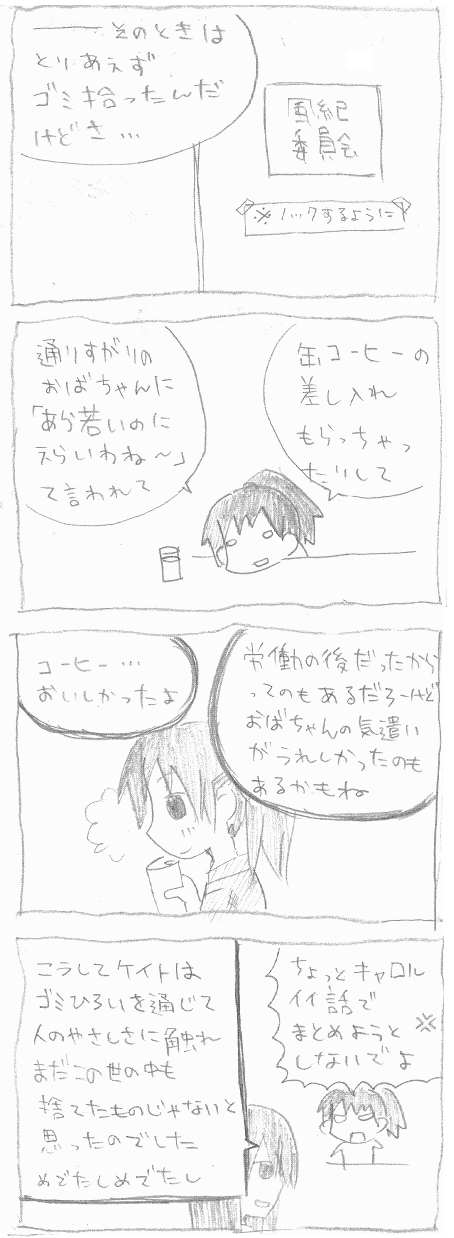 ――そのときは
とりあえず
ゴミ拾ったんだ
けどさ…
風紀
委員会
※ノックするように
缶コーヒーの
差し入れ
もらっちゃっ
たりして
通りすがりの
おばちゃんに
「あら若いのに
えらいわね〜」
て言われて
労働の後だったから
ってのもあるだろーけど
おばちゃんの気遣い
がうれしかったのも
あるかもね
コーヒー…
おいしかったよ
ちょっとキャロル
イイ話で
まとめようと
しないでよ
こうしてケイトは
ゴミひろいを通じて
人のやさしさに触れ
まだこの世の中も
捨てたものじゃないと
思ったのでした
めでたしめでたし